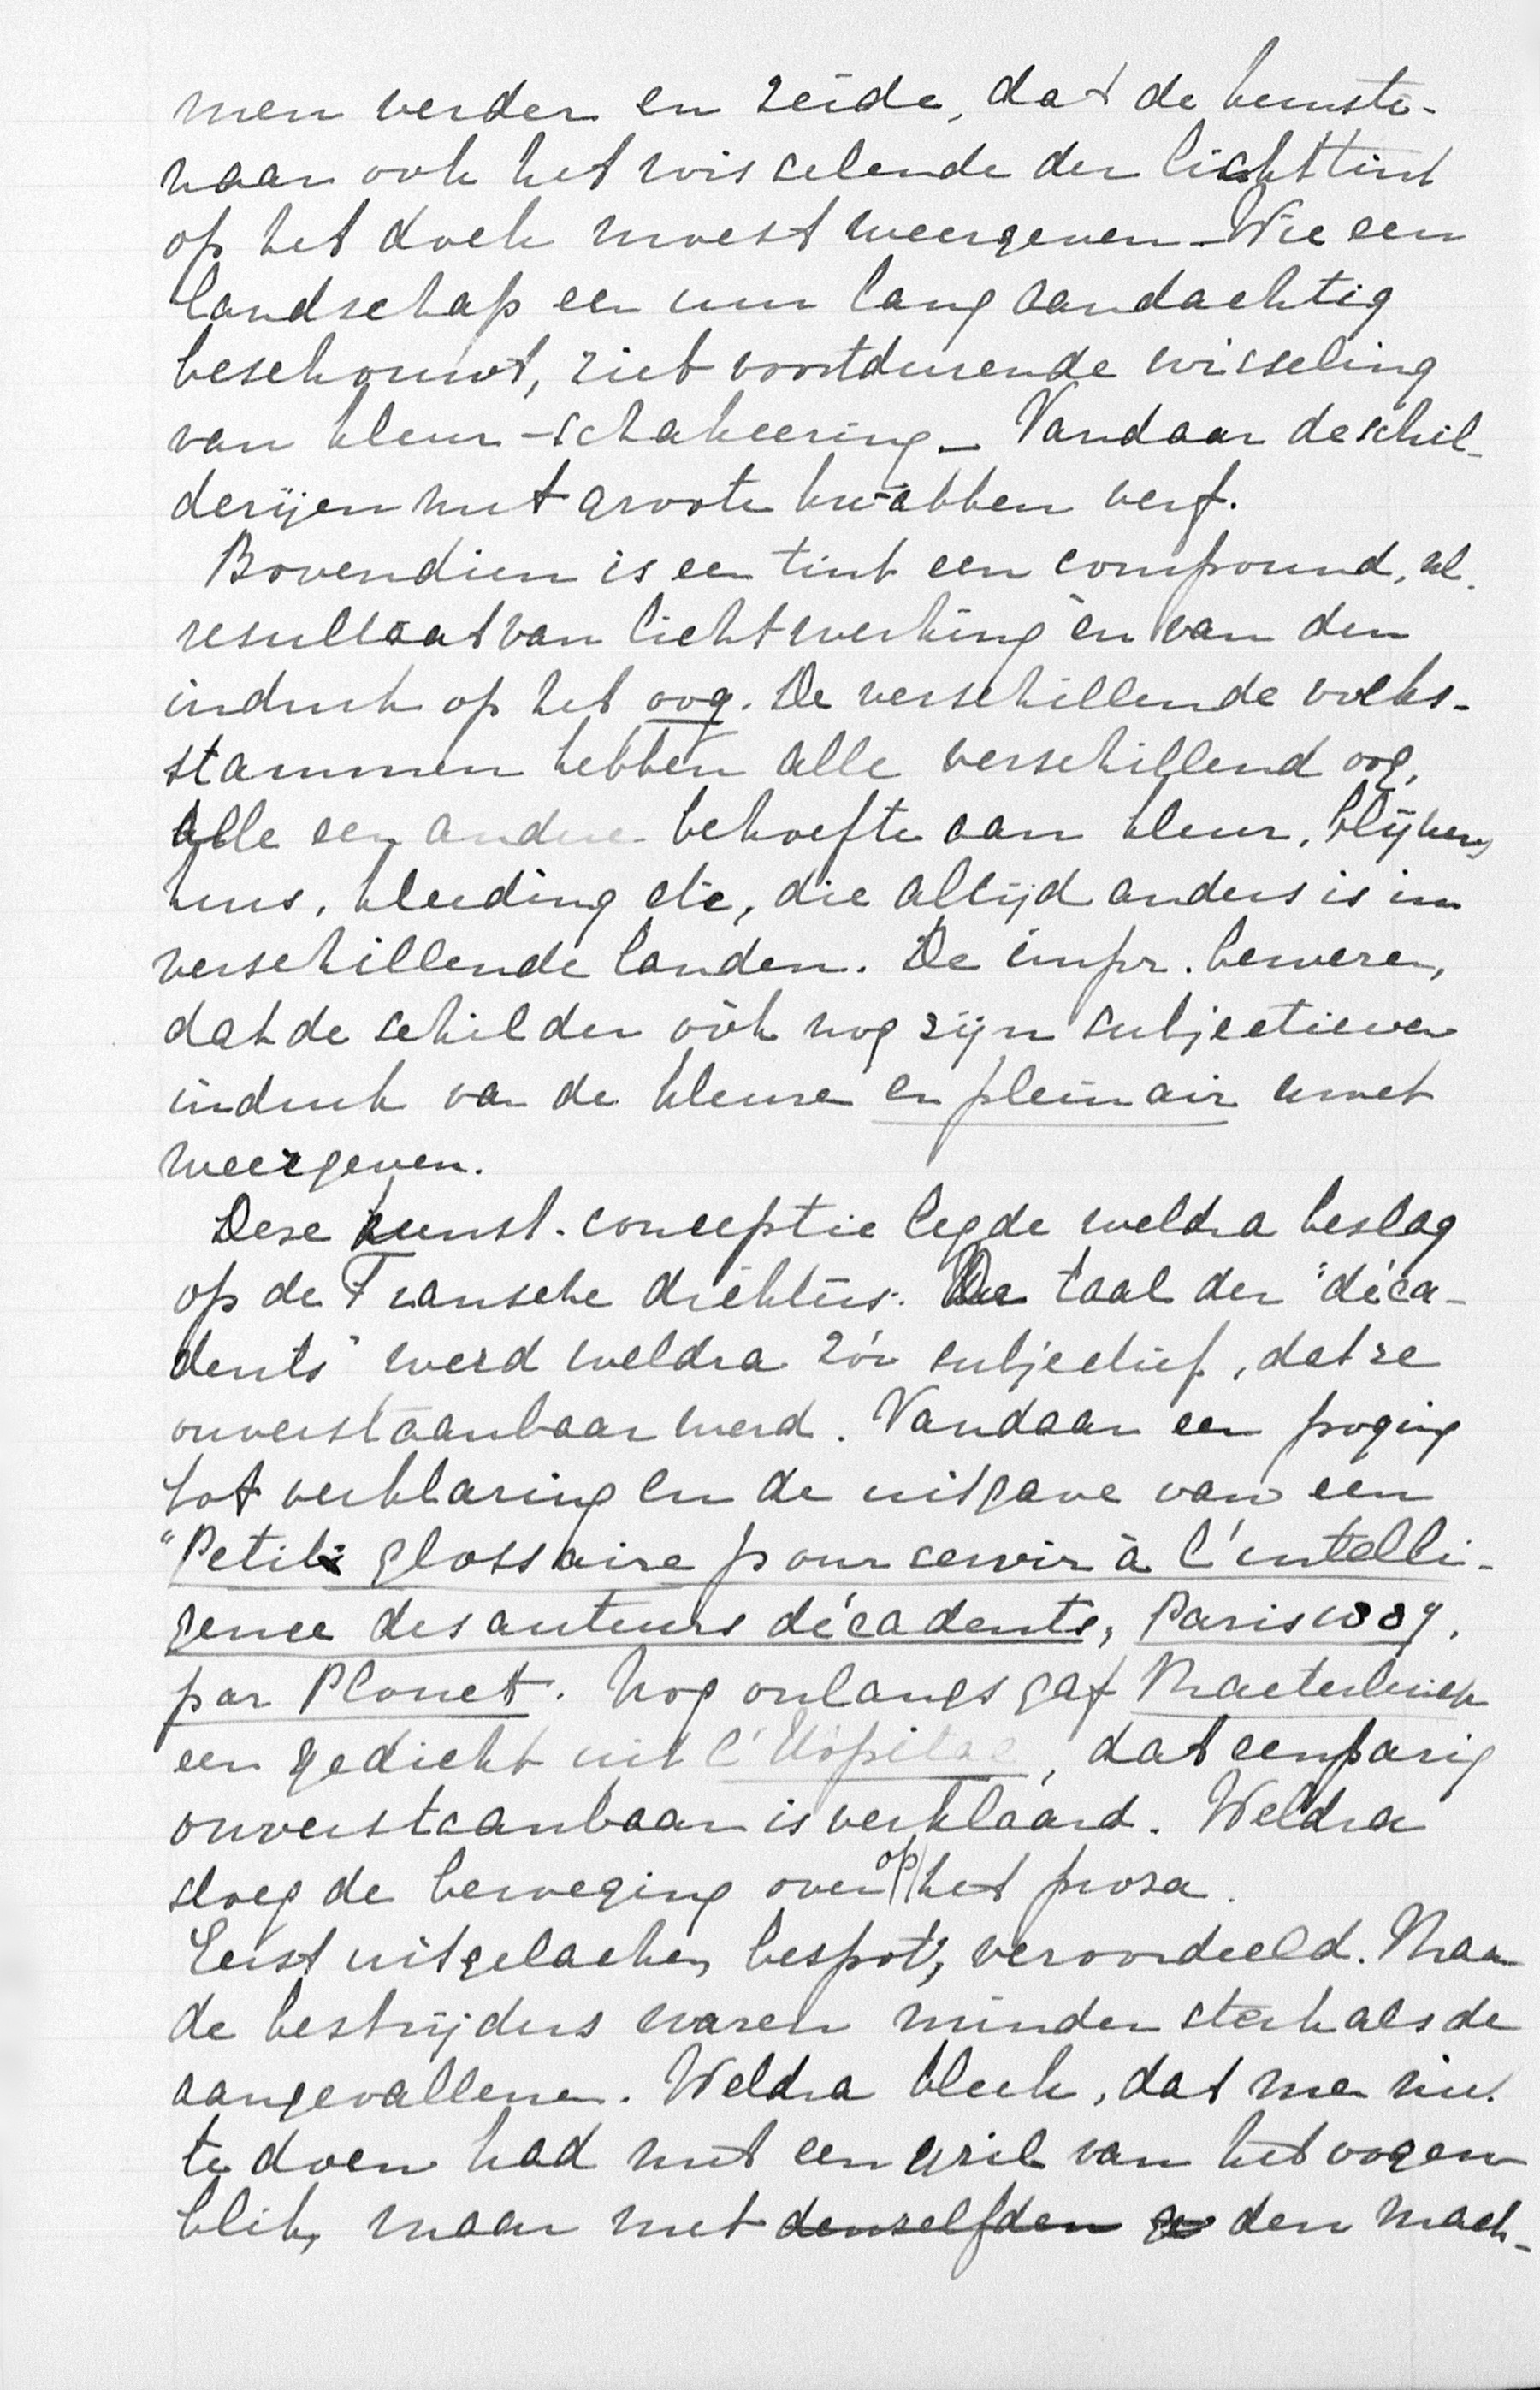 men verder en zeide, dat de kunste-
naar ook het wisselende der lichttint
op het doek moest weergeven - Wie een
landschap een uur lang aandachtig
beschouwt, ziet voortdurende wisseling
van kleur-schakeering - Vandaar de schil-
derijen met groote kwabben verf.
Bovendien is een tint een compound, nl.
resultaat van lichtwerking èn van den
indruk op het oog. De verschillende volks-
stammen hebben alle verschillend oog,
alle een andere behoefte aan kleur, blijkens
huis, kleeding etc, die altijd anders is in
verschillende landen. De impr. beweren,
dat de schilder óók nog zijn subjectieven
indruk van de kleuren en plein air moet
weergeven.
Deze kunst-conceptie legde weldra beslag
op de Fransche dichters. De taal der "déca-
dents" werd weldra zóó subjectief, dat ze
onverstaanbaar werd. Vandaar een poging
tot verklaring en de uitgave van een
"Petit glossaire pour servir à l'intelli-
gence des auteurs décadents, Paris 1889.
par Plouet. Nog onlangs gaf Maeterlinck
een gedicht uit l'Hôpital, dat eenparig
onverstaanbaar is verklaard. Weldra
sloeg de beweging over op het proza.
Eerst uitgelachen, bespot, veroordeeld. Maar
de bestrijders waren minder sterk als de
aangevallenen. Weldra bleek, dat men niet
te doen had met een gril van het oogen
blik, maar met denzelfden den mach-